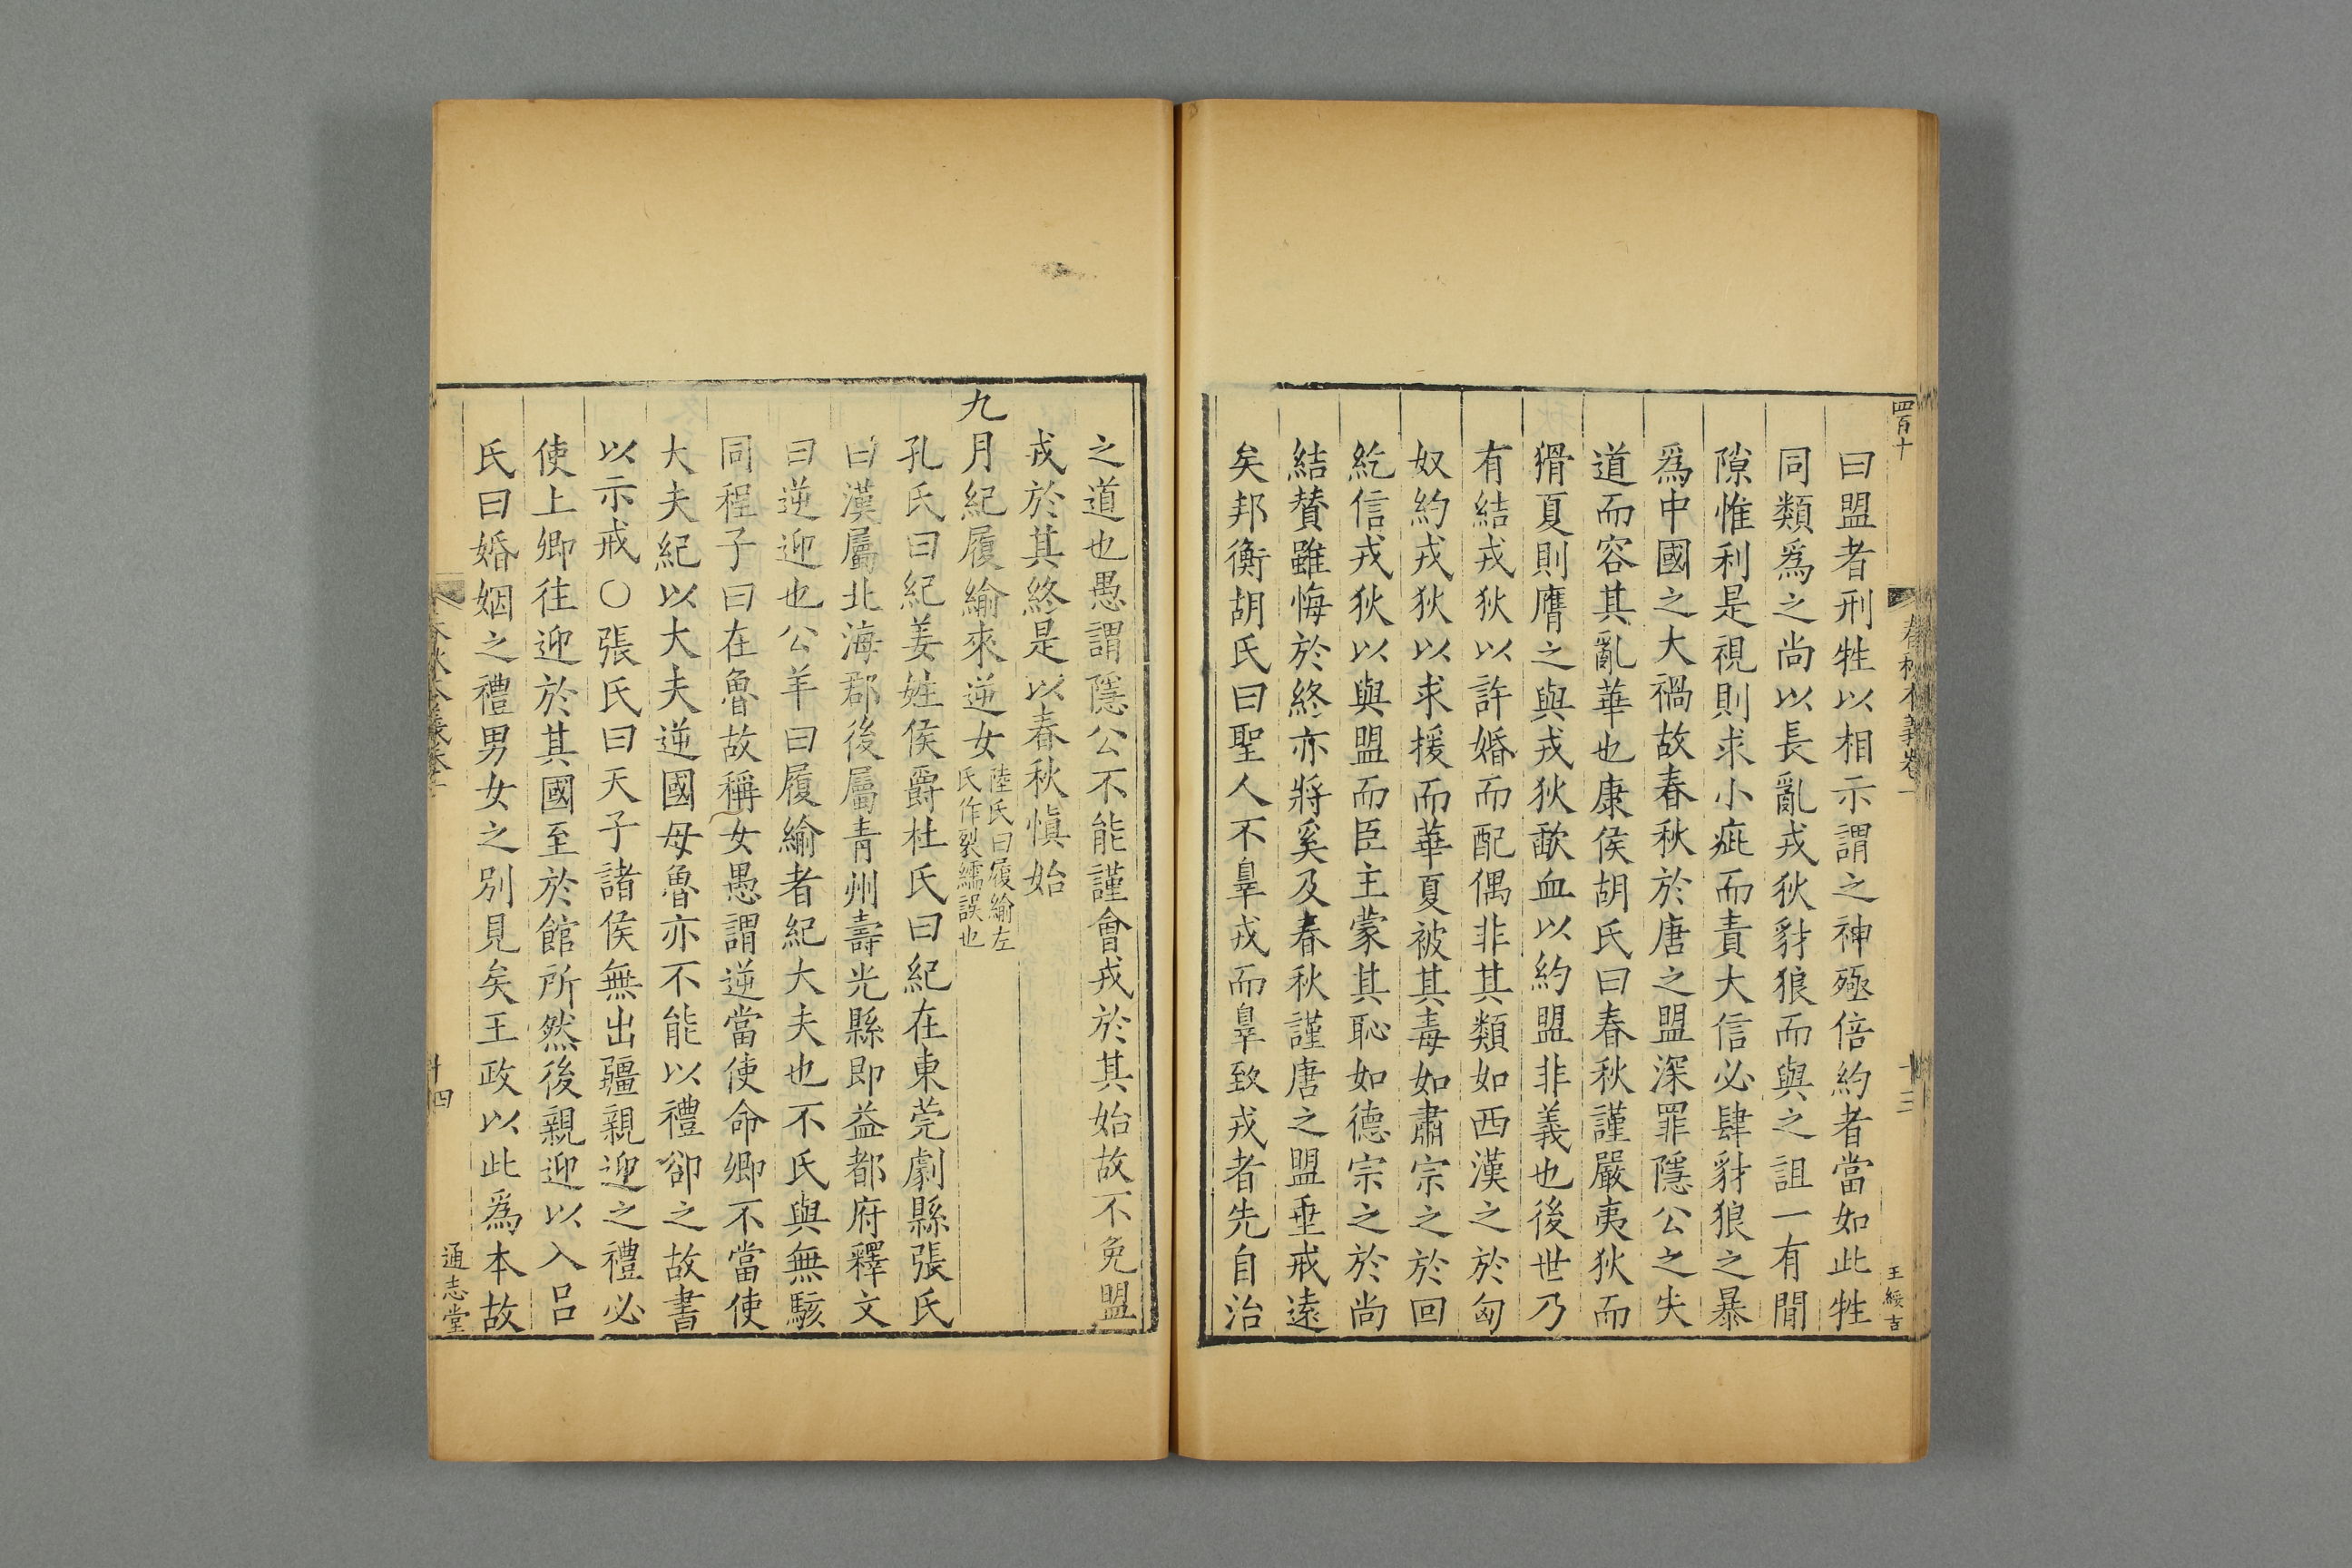 四百十
春秋本義卷一
十三
王綏吉
曰盟者刑牲以相示謂之神殛倍約者當如此牲
同類爲之尚以長亂戎狄豺狼而與之詛一有閒
隙惟利是視則求小疵而責大信必肆豺狼之暴
爲中國之大禍故春秋於唐之盟深罪隱公之失
道而容其亂華也康侯胡氏曰春秋謹嚴夷狄而
猾夏則膺之與戎狄歃血以約盟非義也後世乃
有結戎狄以許婚而配偶非其類如西漢之於匈
奴約戎狄以求援而華夏被其毒如肅宗之於回
紇信戎狄以與盟而臣主蒙其恥如德宗之於尚
結賛雖悔於終亦將奚及春秋謹唐之盟垂戒遠
矣邦衡胡氏曰聖人不辠戎而辠致戎者先自治
之道也愚謂隱公不能謹會戎於其始故不免盟
戎於其終是以春秋愼始
九月紀履緰來逆女陸氏曰履緰左
氏作裂繻誤也
孔氏曰紀姜姓侯爵杜氏曰紀在東莞劇縣張氏
曰漢屬北海郡後屬青州壽光縣即益都府釋文
曰逆迎也公羊曰履緰者紀大夫也不氏與無駭
同程子曰在魯故稱女愚謂逆當使命卿不當使
大夫紀以大夫逆國母魯亦不能以禮卻之故書
以示戒○張氏曰天子諸侯無出疆親迎之禮必
使上卿往迎於其國至於館所然後親迎以入呂
氏曰婚姻之禮男女之別見矣王政以此爲本故
十四
通志堂